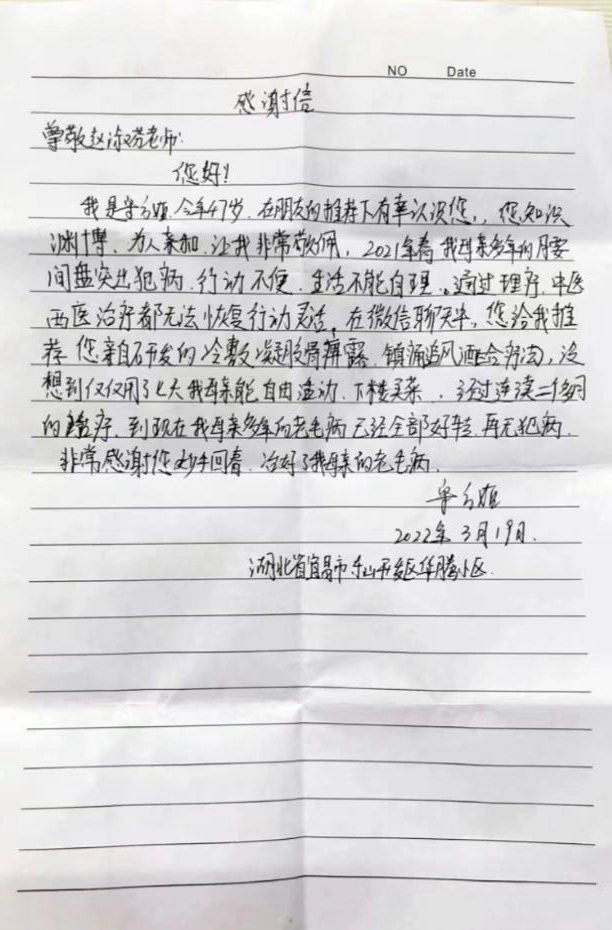 NO Date
感谢信
尊敬赵淑芬老师:
您好!
我是 今年47岁.在朋友的推荐下有幸认识您,,您知识
渊博、为人亲和.让我非常敬佩,2021年春我母亲多年的腰
间盘突出犯病.行动不便.生活不能自理。通过理疗.中医
西医治疗都无法恢复行动灵活。在微信聊天中,您给我推
荐您亲自研发的冷敷凝胶骨 露.镇痛追风酒结合疗法,没
想到仅仅用了七天我母亲能自由活动.下楼买菜.经过连续二个多月
的 疗.到现在我母亲多年的老毛病已经全部好转.再无犯病.
非常感谢您妙手回春.治好了我母亲的老毛病.
2022年3月19日.
湖北省宜昌市 山开发区华腾小区.